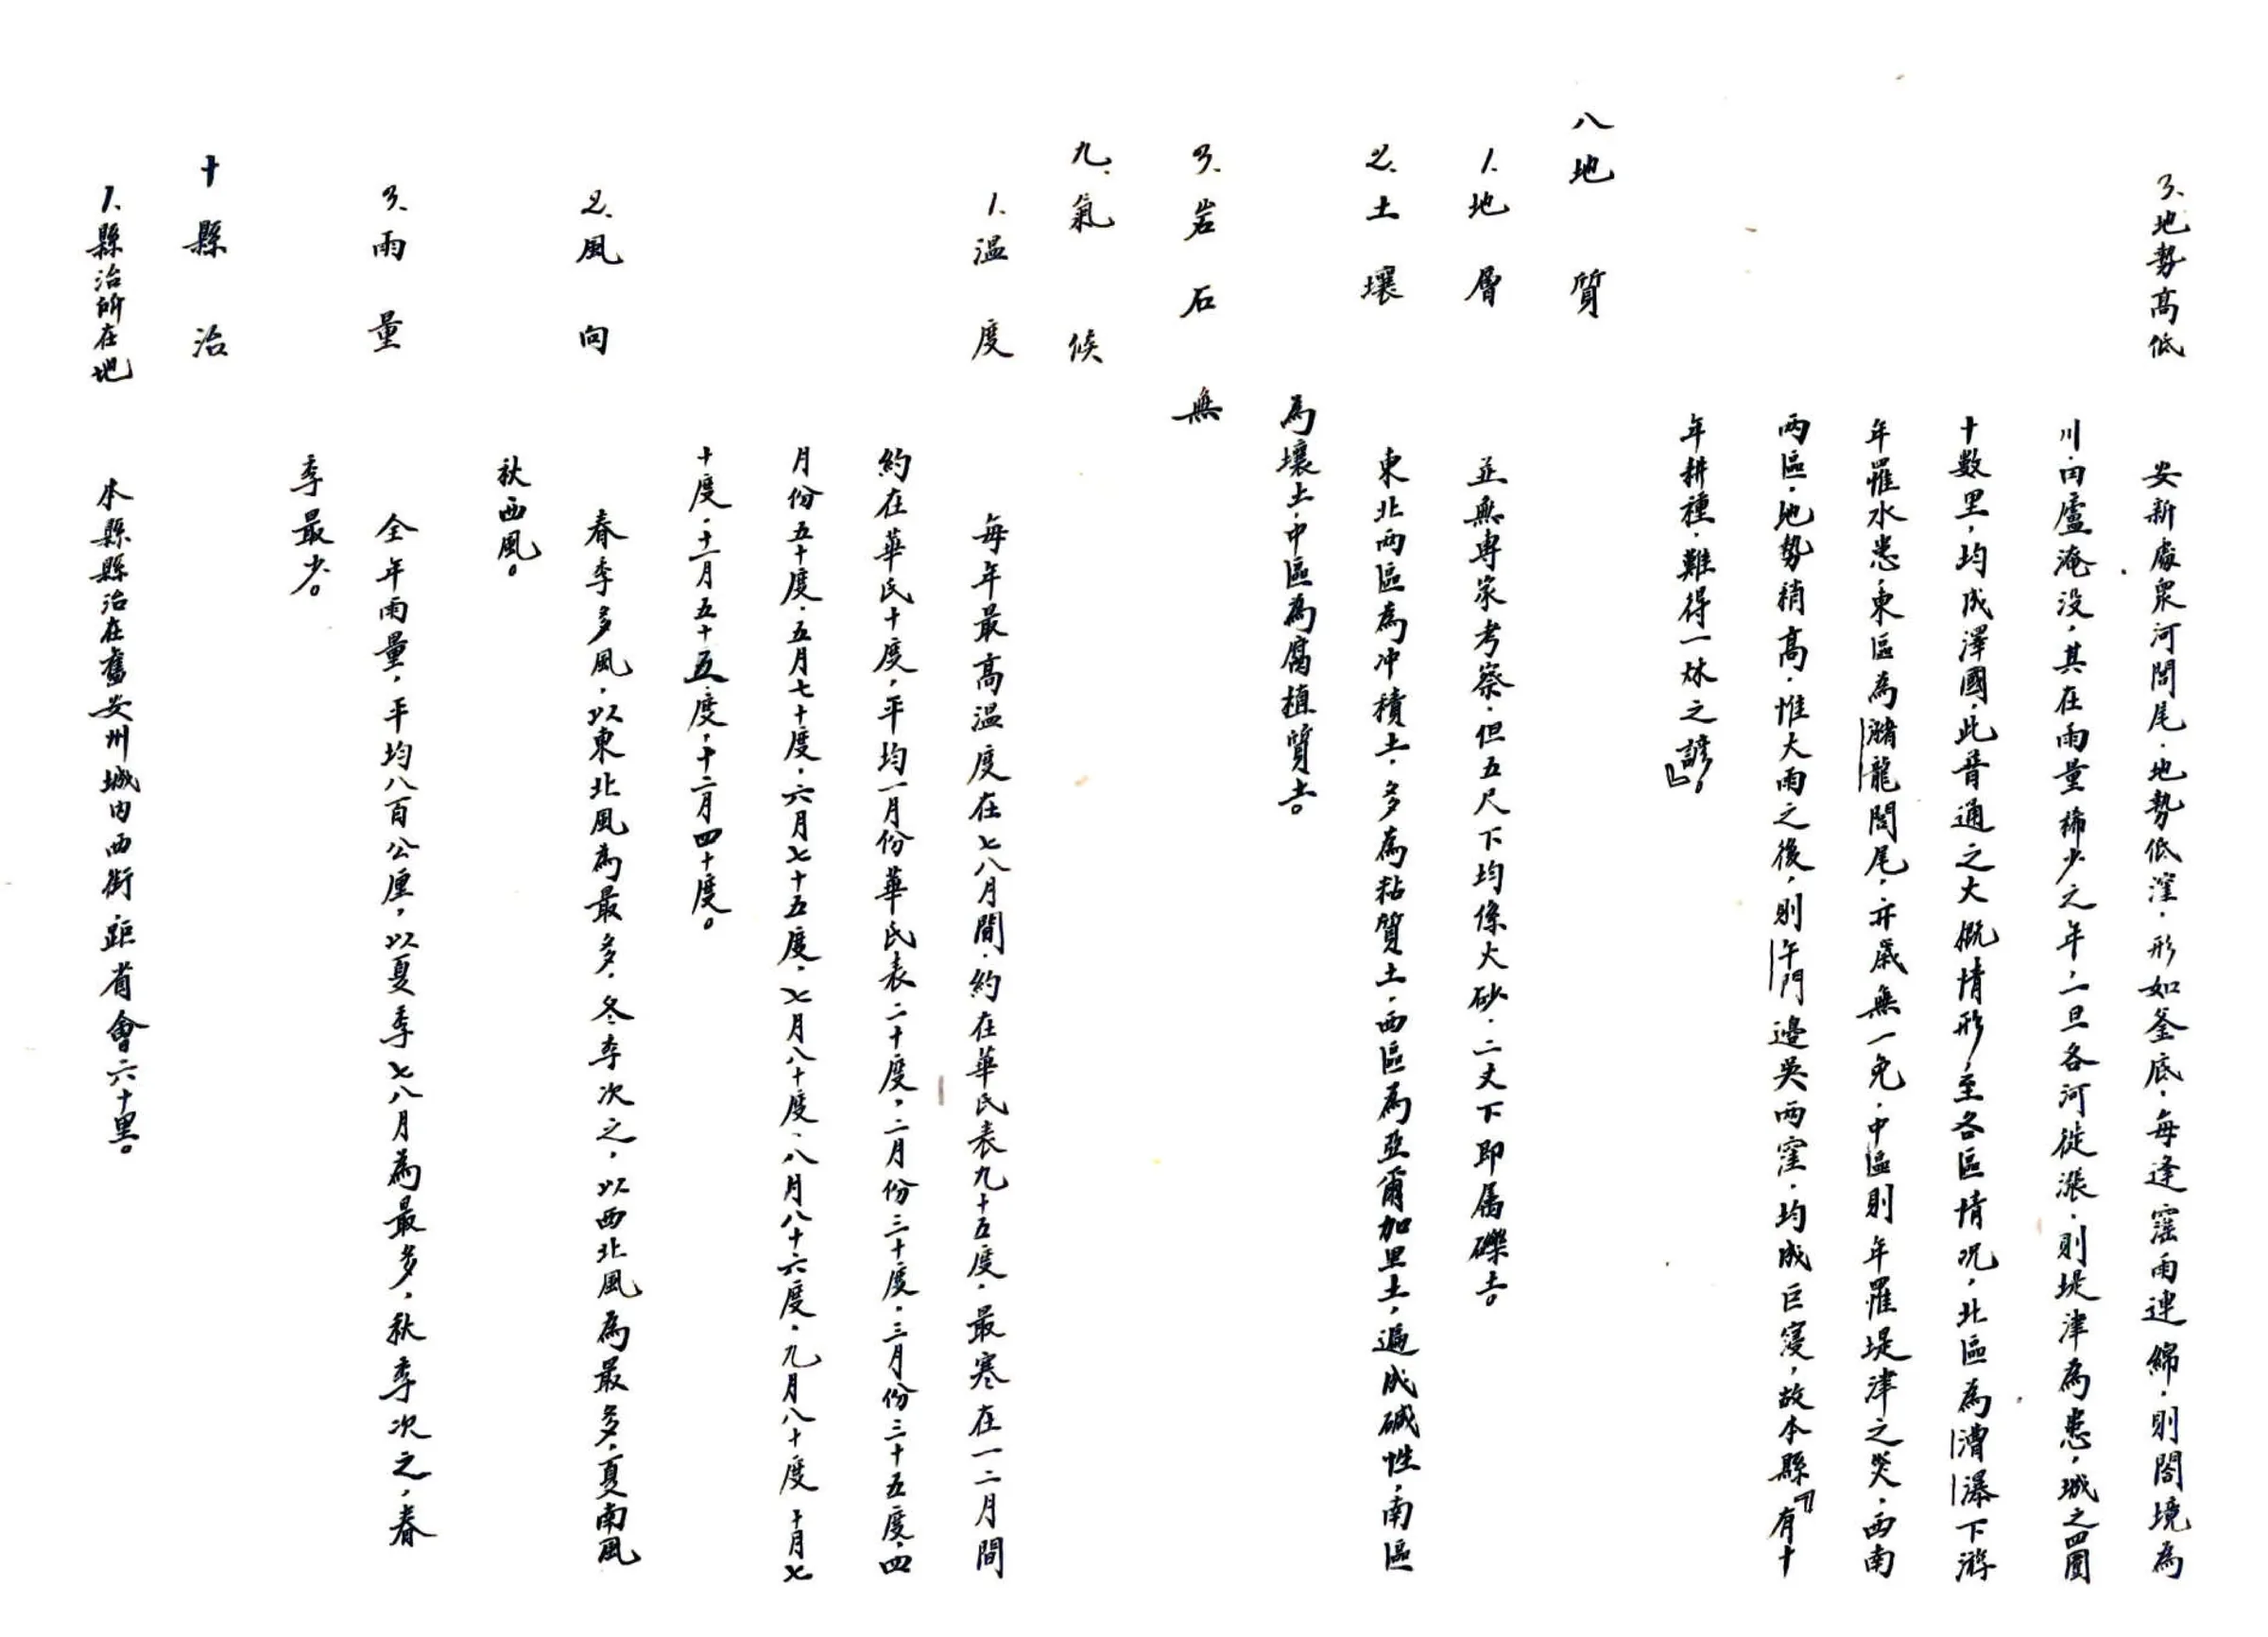 3、地勢高低
安新處衆河閭尾．地勢低窪．形如釜底．每逢霪雨連綿．則閤境為
川．田廬淹没，其在雨量稀少之年，一旦各河徙漲．則堤津為患，城之四圍
十数里，均成澤國，此普通之大概情形，至各區情况，北區為漕瀑下游
年罹水患，東區為瀦龍閭尾．亦歲無一免．中區則年罹堤津之災．西南
兩區．地勢稍高．惟大雨之後，則午門邊吳兩窪．均成巨寖，故本縣『有十
年耕種．難得一秋之諺』。
八地質
1、地層
並無專家考察．但五尺下均係大砂．二丈下即属礫土。
2、土壤
東北两區為冲積土．多為粘質土．西區為亞爾加里土，遍成碱性，南區
為壤土．中區為腐植質土。
3、岩石 無
九、氣候
1、温度
每年最高温度在七八月間．約在華氏表九十五度．最寒在一二月間
約在華氏十度，平均一月份華氏表二十度，二月份三十度，三月份三十五度，四
月份五十度．五月七十度，六月七十五度．七月八十度．八月八十六度．九月八十度 十月七
十度．十一月五十五度，十二月四十度。
2、風向
春季多風，以東北風為最多．冬季次之，以西北風為最多．夏南風
秋西風。
3、雨量
全年雨量，平均八百公厘，以夏季七八月為最多，秋季次之，春
季最少。
十縣治
1、縣治所在地
本縣縣治在舊安州城内西街 距省會六十里。